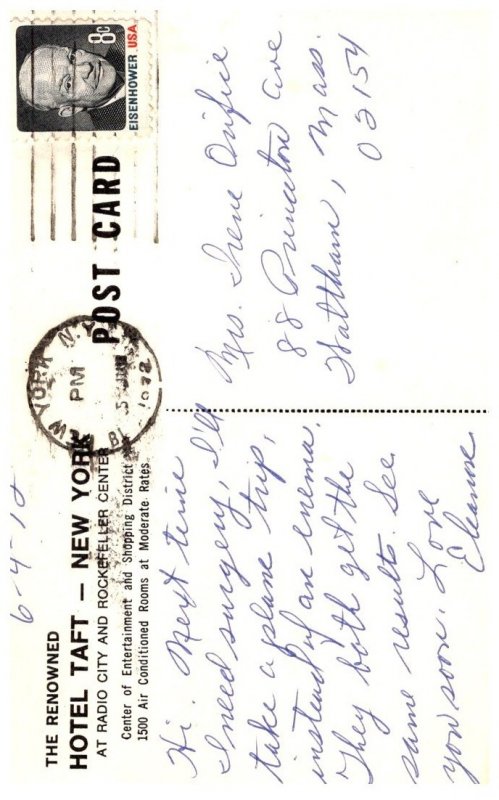 6-4-72
THE RENOWNED
HOTEL TAFT – NEW YORK
AT RADIO CITY AND ROCKEFELLER CENTER
Center of Entertainment and Shopping District
1500 Air Conditioned Rooms at Moderate Rates
POST CARD
YORK, N.Y.
PM
5 JUN
1972
8c
EISENHOWER.USA
Hi. Next time
I need surgery, I'll
take a plane trip,
instead of an enema.
They both get the
same results. See
you soon. Love
Eleanor.
Mrs. Irene Orifice
88 Princeton Ave
Waltham, Mass.
02154